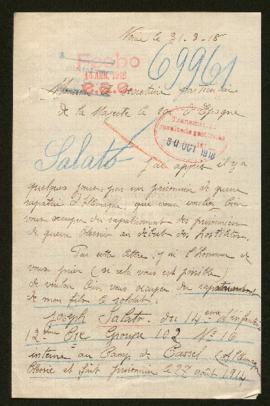 Nice le 21-3-18
69961
Monsieur le Secrétaire particulier
de la Majesté le Roi d'Espagne
30 OCT 1918
Salato
J'ai appris il y a
quelques jours par un prisonnier de guerre
rapatrié d'Allemagne que vous vouliez bien
vous occuper du rapatriement des prisonniers
de guerre blessés au début des hostilités.
Par cette lettre j'ai l'honneur de
vous prier si cela vous est possible
de vouloir bien vous occuper du rapatriement
de mon fils le soldat
Joseph Salato du 14 eme d'infanterie
12 eme Cie Groupe 102 No 16
interné au Camp de Cassel (Allemagne
blessé et fait prisonnier le 27 août 1914